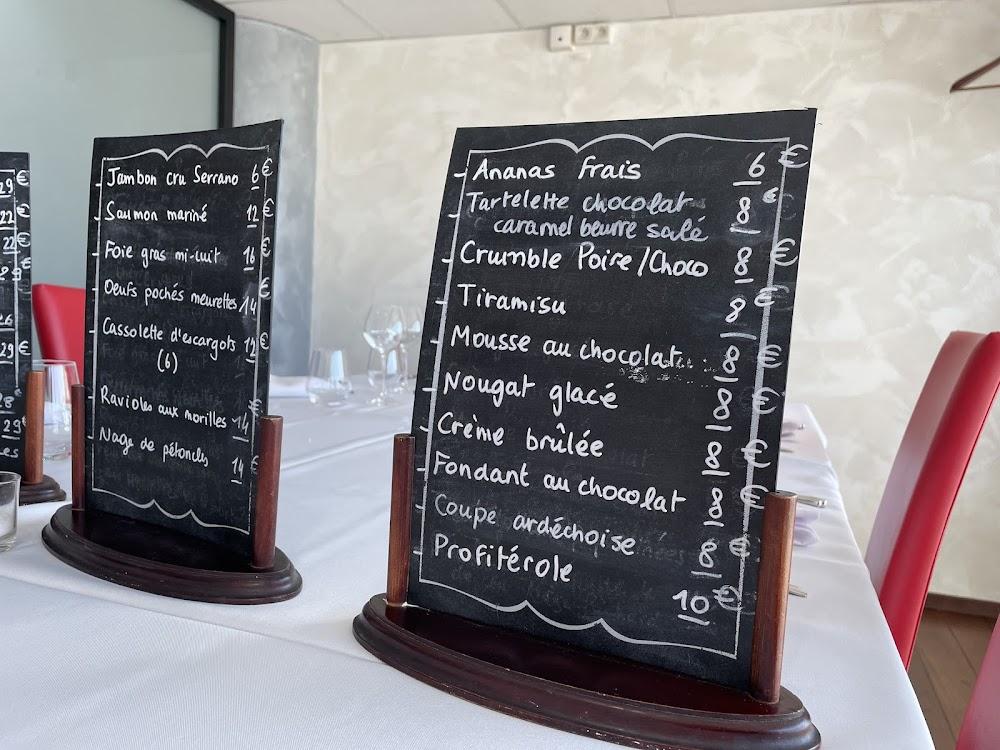 29 €
22 €
22 €
8 €
26
29 €
28
29 €
es
Jambon cru Serrano 6 €
Saumon mariné 12 €
Foie gras mi-cuit 16 €
Oeufs pochés meurettes 14 €
Cassolette d'escargots 12 €
(6)
Ravioles aux morilles 14 €
Nage de pétoncles 14 €
Ananas frais 6 €
Tartelette chocolat 8 €
caramel beurre salé
Crumble Poire/Choco 8 €
Tiramisu 8 €
Mousse au chocolat 8 €
Nougat glacé 8 €
Crème brûlée 8 €
Fondant au chocolat 8 €
Coupe ardéchoise 8 €
Profitérole 10 €